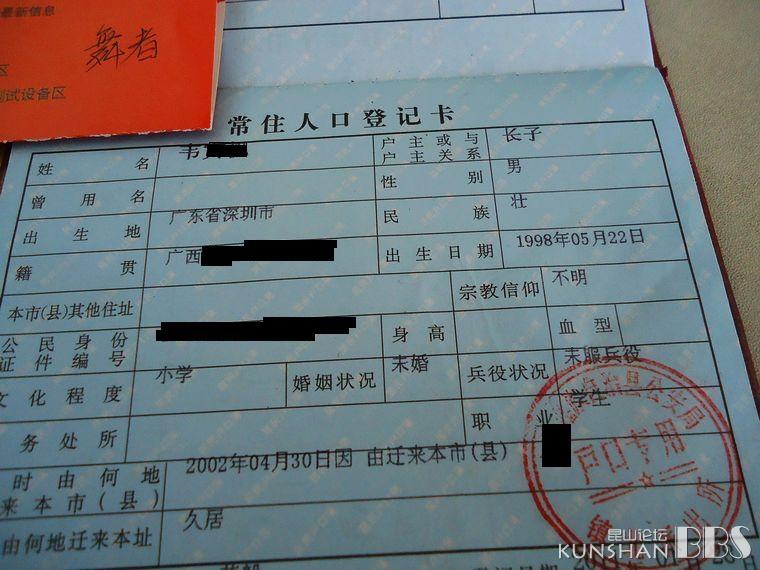 最新信息
舞者
区
试设备区
常住人口登记卡
姓名 韦 户主或与户主关系 长子
曾用名 性别 男
出生地 广东省深圳市 民族 壮
籍贯 广西 出生日期 1998年05月22日
本市(县)其他住址 宗教信仰 不明
公民身份证件编号 身高 血型
文化程度 小学 婚姻状况 未婚 兵役状况 未服兵役
务处所 职业 学生
时由何地来本市(县) 2002年04月30日因 由迁来本市(县)
由何地迁来本址 久居
县公安局
户口专用
昆山论坛
KUNSHAN BBS